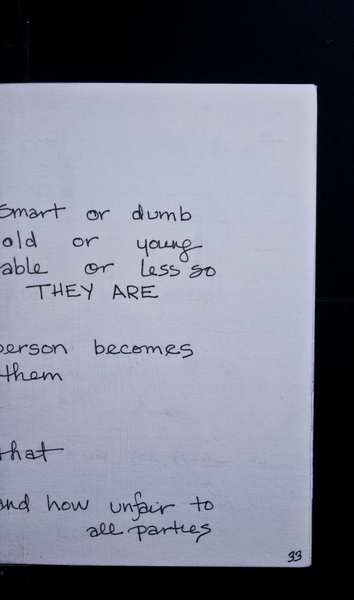 smart or dumb
old or young
able or less so
THEY ARE
person becomes
them
that
and how unfair to
all parties
33